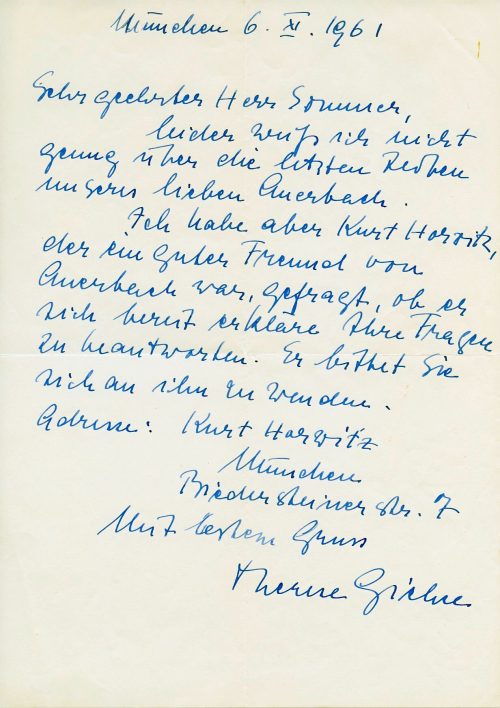 München 6. XI. 1961
Sehr geehrter Herr Sommer,
leider weiß ich nicht
genug über die letzten Proben
unseres lieben Auerbach.
Ich habe aber Kurt Horwitz,
der ein guter Freund von
Auerbach war, gefragt, ob er
sich bereit erkläre Ihre Fragen
zu beantworten. Er bittet Sie
sich an ihn zu wenden.
Adresse: Kurt Horwitz
München
Biedersteinerstr. 7
Mit bestem Gruss
Therese Giehse